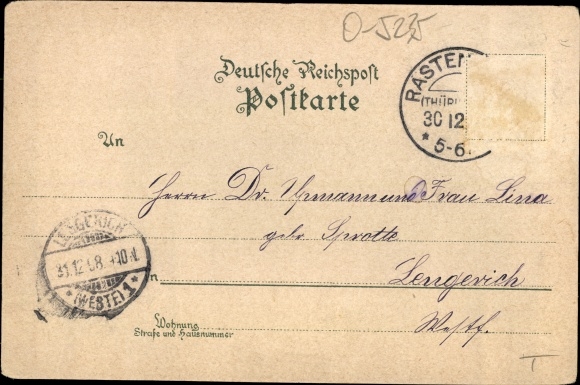 O-5235
Deutsche Reichspost
Postkarte
RASTEN
(THÜR
30 12
* 5-6
An
Herrn Dr. und Frau Lina
geb. Sprotte
LENGERICH
31.12.98.
* (WESTF.) 1 *
n
Lengerich
Westf.
Wohnung
Straße und Hausnummer
T